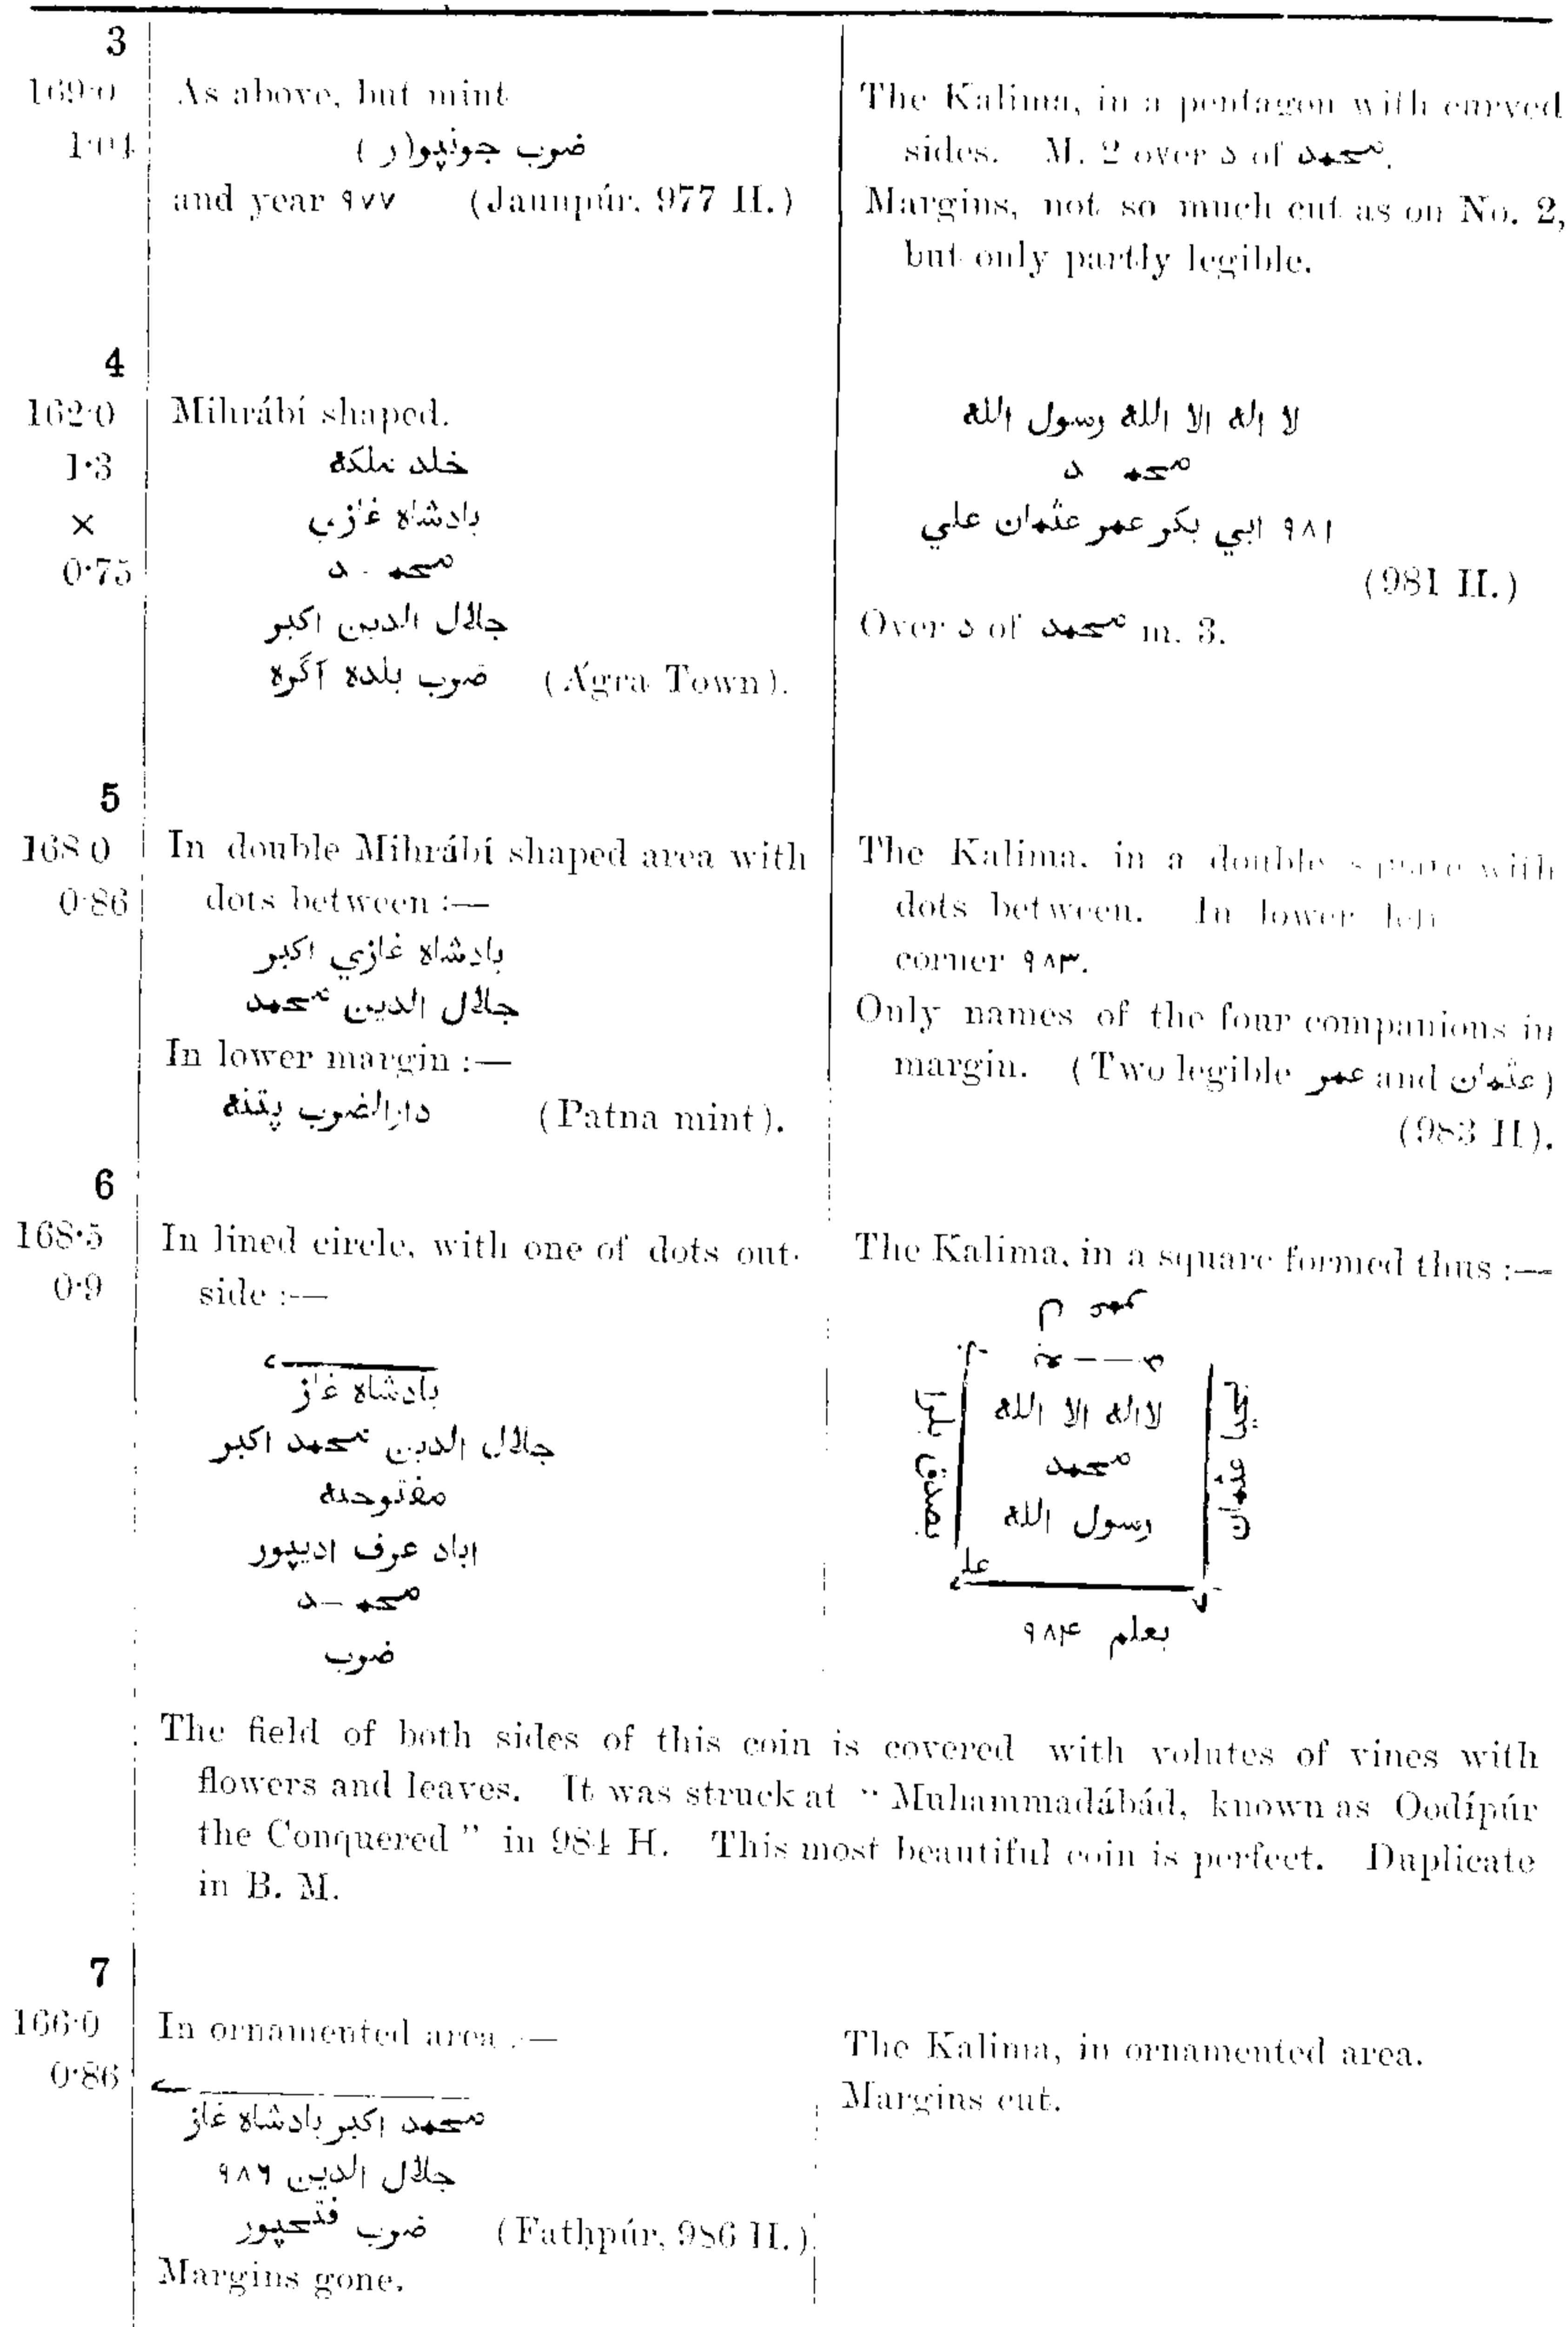 3
169·0
1·04
As above, but mint
ضرب جونپو(ر)
and year ۹۷۷ (Jaunpúr, 977 H.)
The Kalima, in a pentagon with curved
sides. M. 2 over د of محمد.
Margins, not so much cut as on No. 2,
but only partly legible.
4
162·0
1·3
×
0·75
Mihrábí shaped.
خلد ملكه
بادشاه غازي
محمـ - د
جلال الدين اكبر
ضرب بلده آگره (Ágra Town).
لا اله الا الله رسول الله
محمـ د
۹۸۱ ابي بكر عمر عثمان علي
(981 H.)
Over د of محمد m. 3.
5
168·0
0·86
In double Mihrábí shaped area with
dots between :—
بادشاه غازي اكبر
جلال الدين محمد
In lower margin :—
دارالضرب پتنه (Patna mint).
The Kalima, in a double square with
dots between. In lower left
corner ۹۸۳.
Only names of the four companions in
margin. (Two legible عمر and عثمان)
(983 H).
6
168·5
0·9
In lined circle, with one of dots out-
side :—
بادشاه غاز
جلال الدين محمد اكبر
مفتوحه
اباد عرف اديپور
محمـ - د
ضرب
The Kalima, in a square formed thus :—
لااله الا الله
محمد
رسول الله
بصدق
عثمان
علـ
بعلم ۹۸۴
The field of both sides of this coin is covered with volutes of vines with
flowers and leaves. It was struck at “Muhammadábád, known as Oodípúr
the Conquered” in 984 H. This most beautiful coin is perfect. Duplicate
in B. M.
7
166·0
0·86
In ornamented area :—
محمد اكبر بادشاه غاز
جلال الدين ۹۸۶
ضرب فتحپور (Fatḥpúr, 986 H.)
Margins gone.
The Kalima, in ornamented area.
Margins cut.